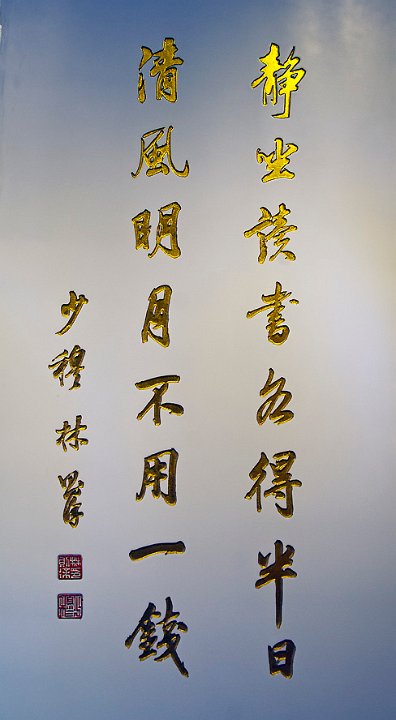 靜坐讀書各得半日
清風明月不用一錢
少穆林